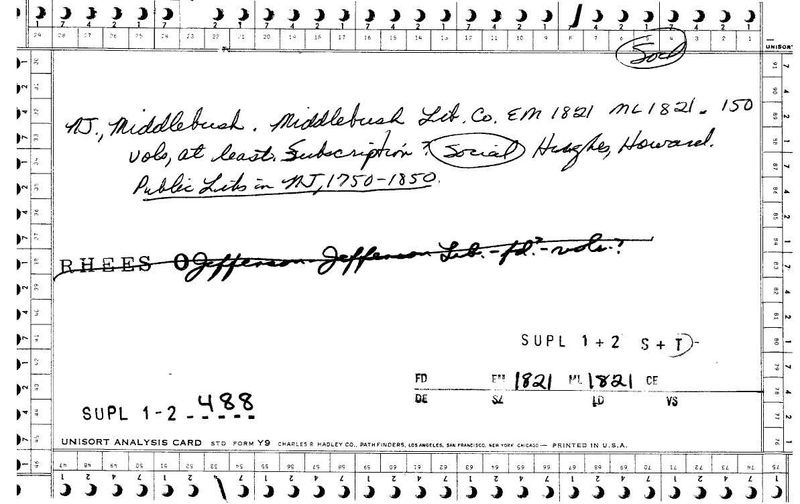 Socl
NJ., Middlebush. Middlebush Lib. Co. EM 1821 ML 1821. 150
vols, at least. Subscription? Social Hughes, Howard.
Public Libs in NJ, 1750-1850.
RHEES O Jefferson. Jefferson Lib. - fd? - vols.?
SUPL 1+2 S+T-
FD EM 1821 ML 1821 CE
DE SZ LD VS
SUPL 1-2 - 488
UNISORT ANALYSIS CARD STD FORM Y9 CHARLES R HADLEY CO., PATHFINDERS, LOS ANGELES, SAN FRANCISCO, NEW YORK CHICAGO — PRINTED IN U.S.A.